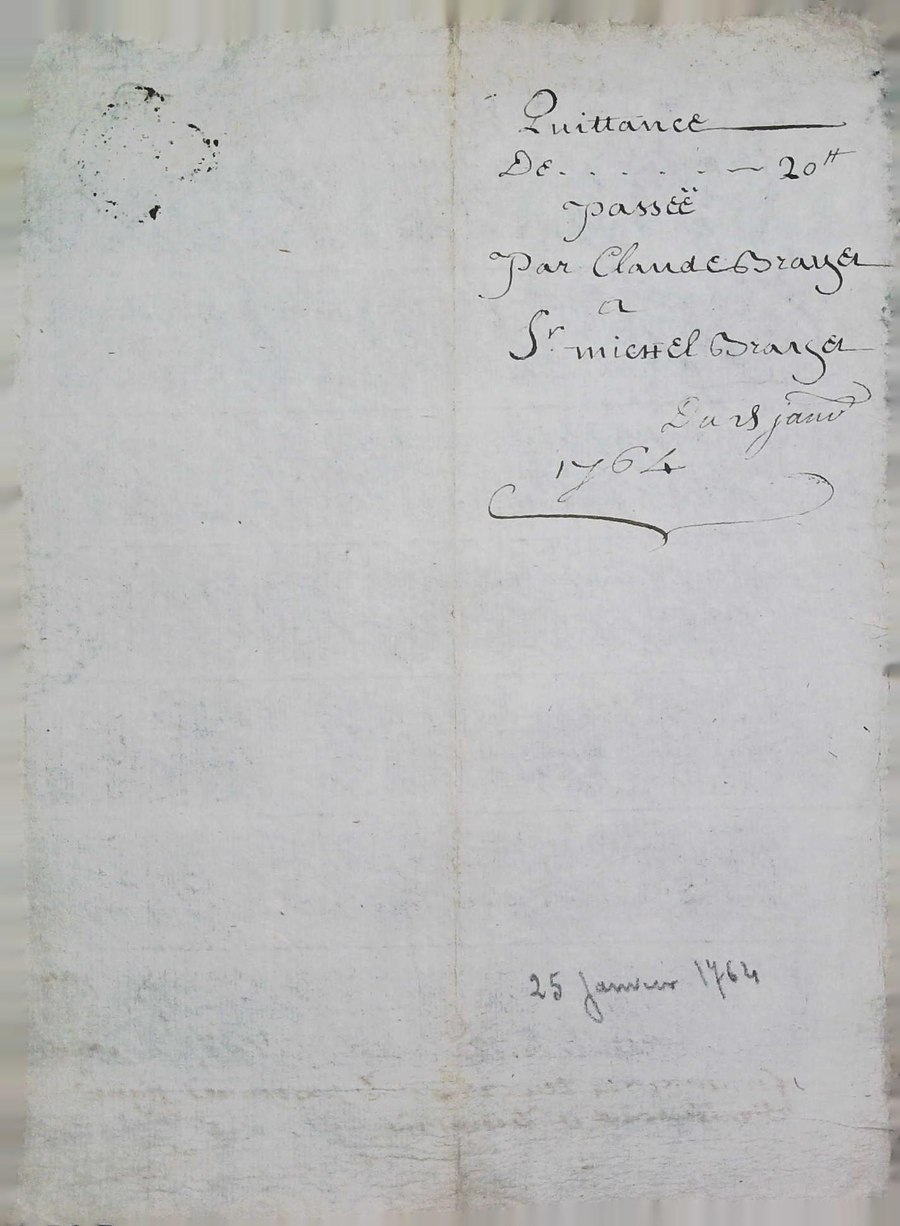 Quittance
De . . . . . — 20ᵗᵗ
passéë
Par Claude Brayer
a
Sʳ michel Brayer
Du 25 janvʳ
1764
25 Janvier 1764